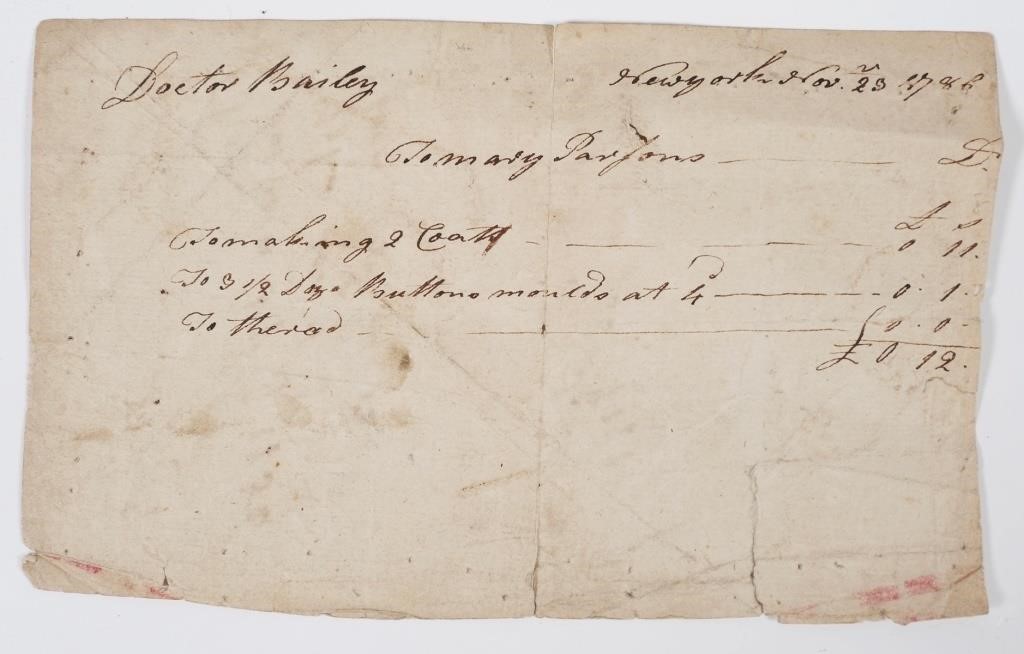 Doctor Bailey Newyork Novr. 23 178
To mary Parsons — D.
£ s
To making 2 Coats — 0 11.
To 3 1/2 Doz. Buttons moulds at 4d — 0. 1.
To theread — 0. 0.
£ 0 12.